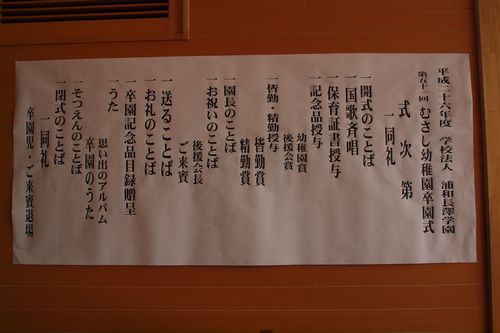 平成二十六年度　学校法人　浦和長澤学園
第五十一回　むさし幼稚園卒園式
式次第
一同礼
一開式のことば
一国歌斉唱
一保育証書授与
一記念品授与
幼稚園賞
後援会賞
一皆勤・精勤授与
皆勤賞
精勤賞
一園長のことば
一お祝いのことば
後援会長
ご来賓
一送ることば
一お礼のことば
一卒園記念品目録贈呈
一うた
思い出のアルバム
卒園のうた
一そつえんのことば
一閉式のことば
一同礼
卒園児・ご来賓退場